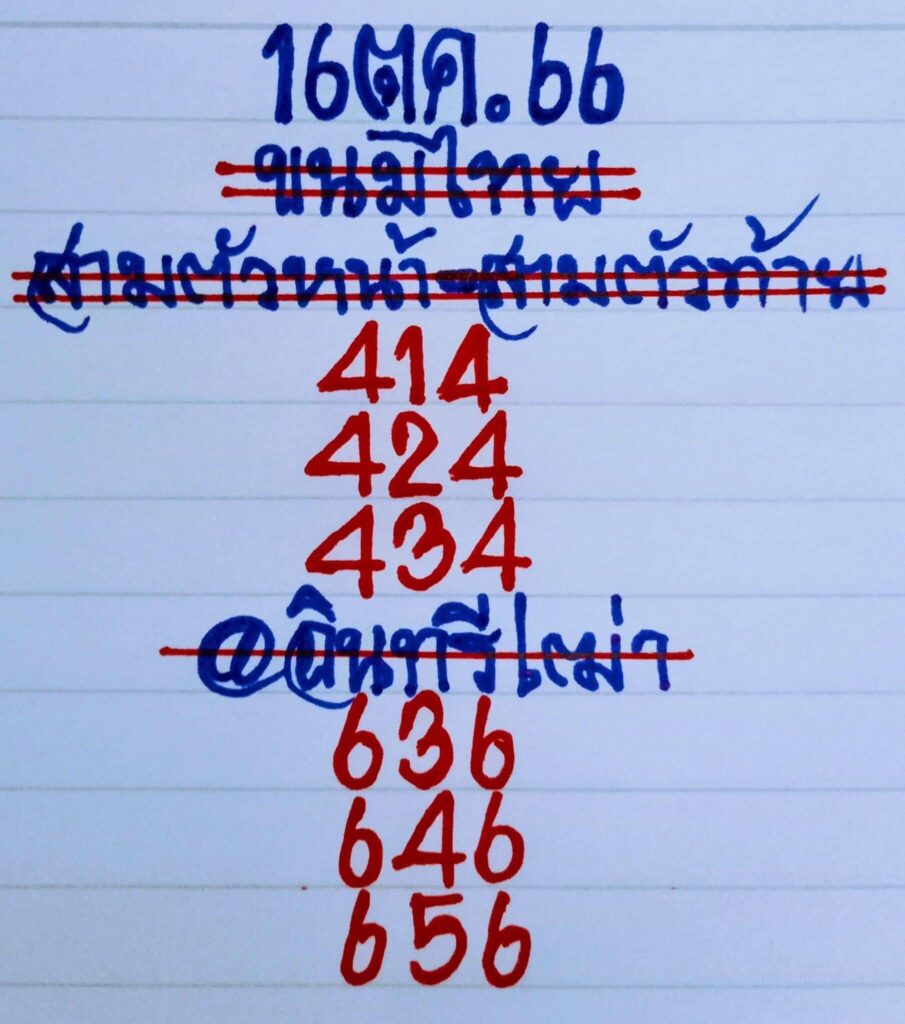 16ตค.66
ขนมไทย
สามตัวหน้า-สามตัวท้าย
414
424
434
@อินทรีเหม่า
636
646
656